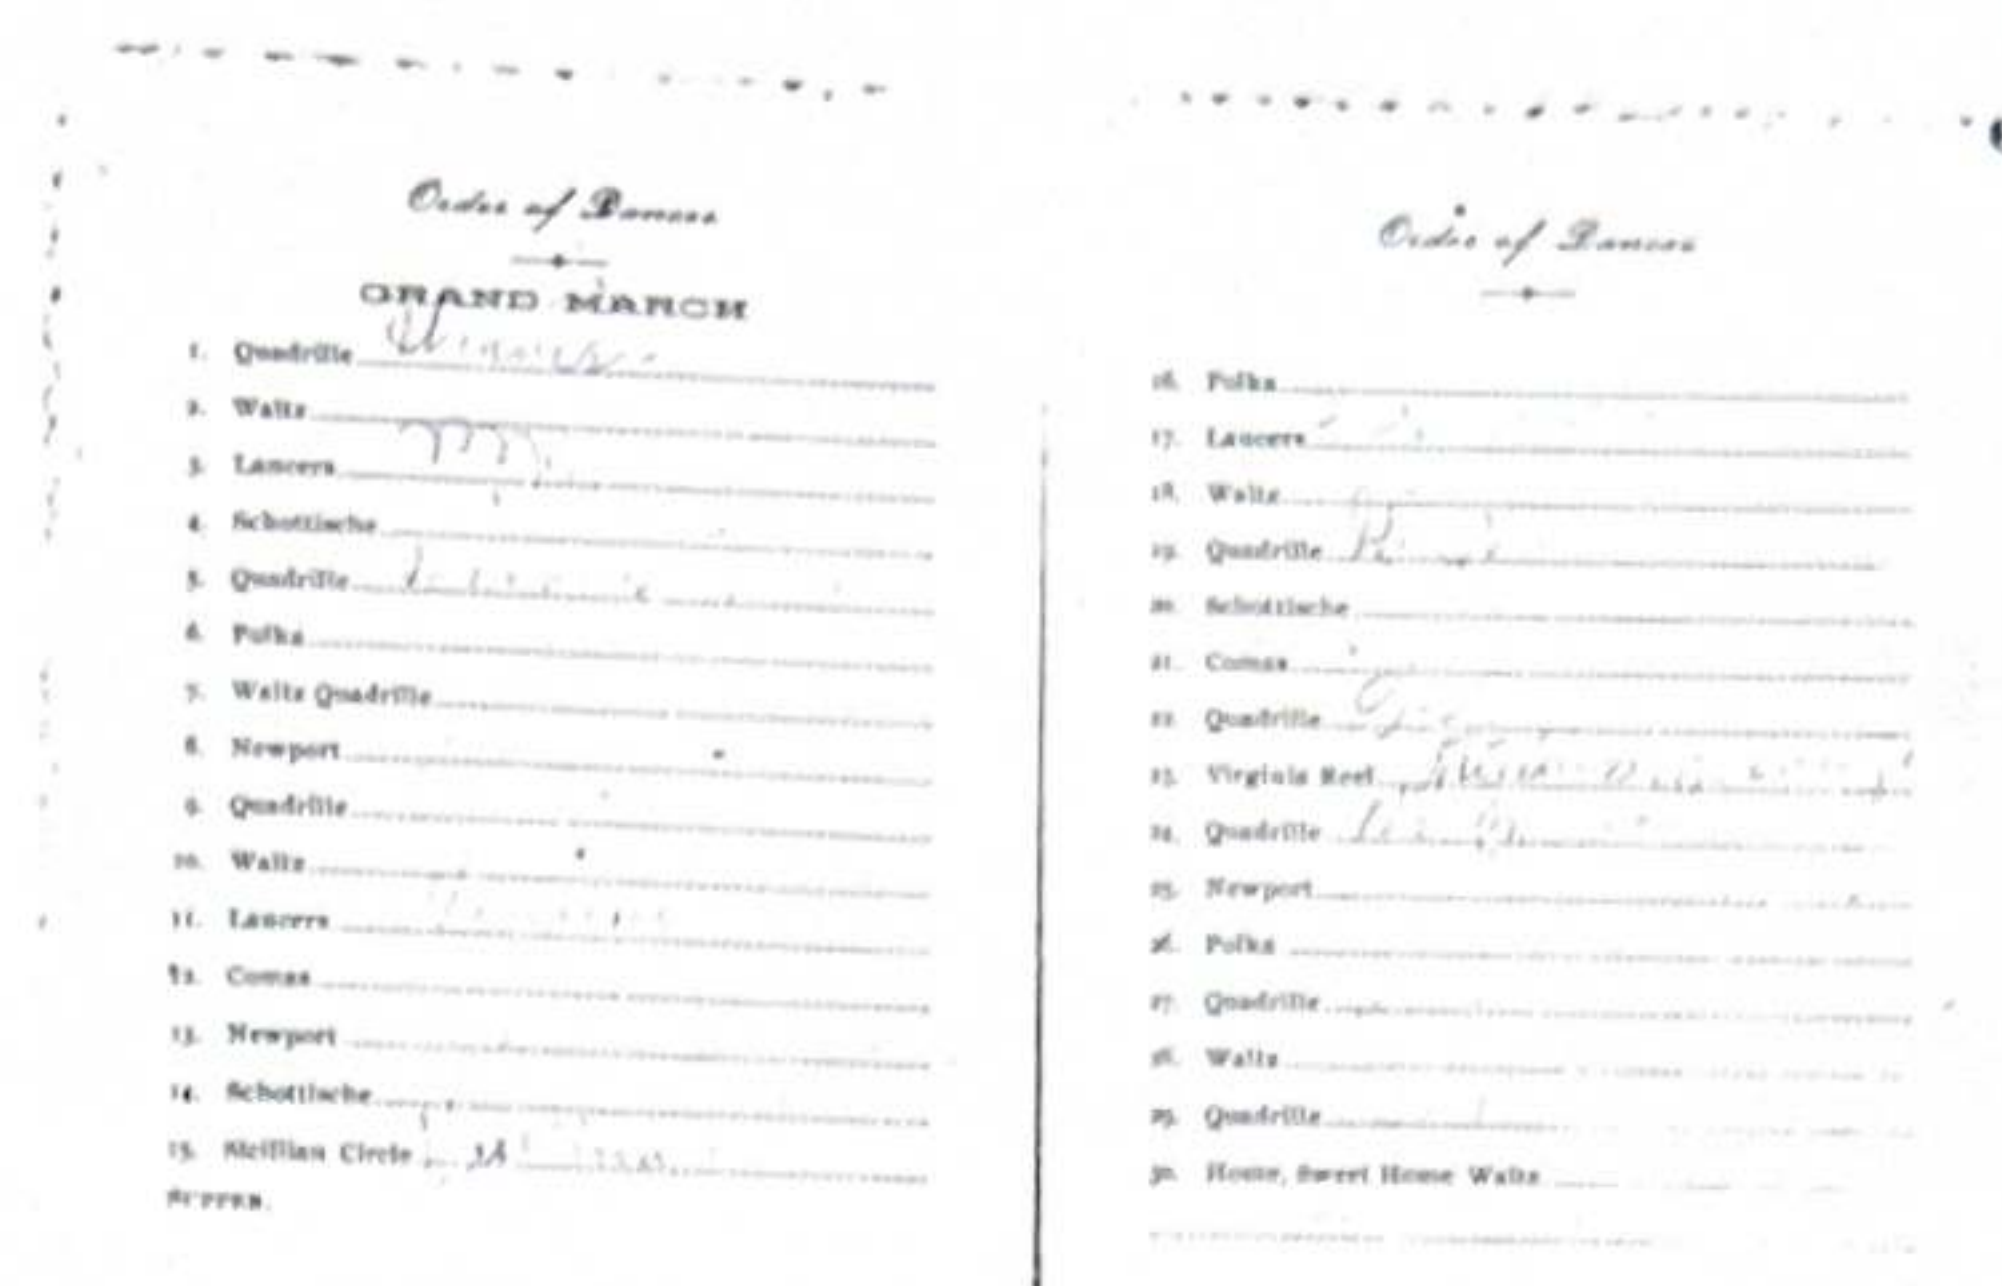 Order of Dances
GRAND MARCH
1. Quadrille
2. Waltz
3. Lancers
4. Schottische
5. Quadrille
6. Polka
7. Waltz Quadrille
8. Newport
9. Quadrille
10. Waltz
11. Lancers
12. Comas
13. Newport
14. Schottische
15. Sicillian Circle
SUPPER.
Order of Dances
16. Polka
17. Lancers
18. Waltz
19. Quadrille
20. Schottische
21. Comas
22. Quadrille
23. Virginia Reel
24. Quadrille
25. Newport
26. Polka
27. Quadrille
28. Waltz
29. Quadrille
30. Home, Sweet Home Waltz